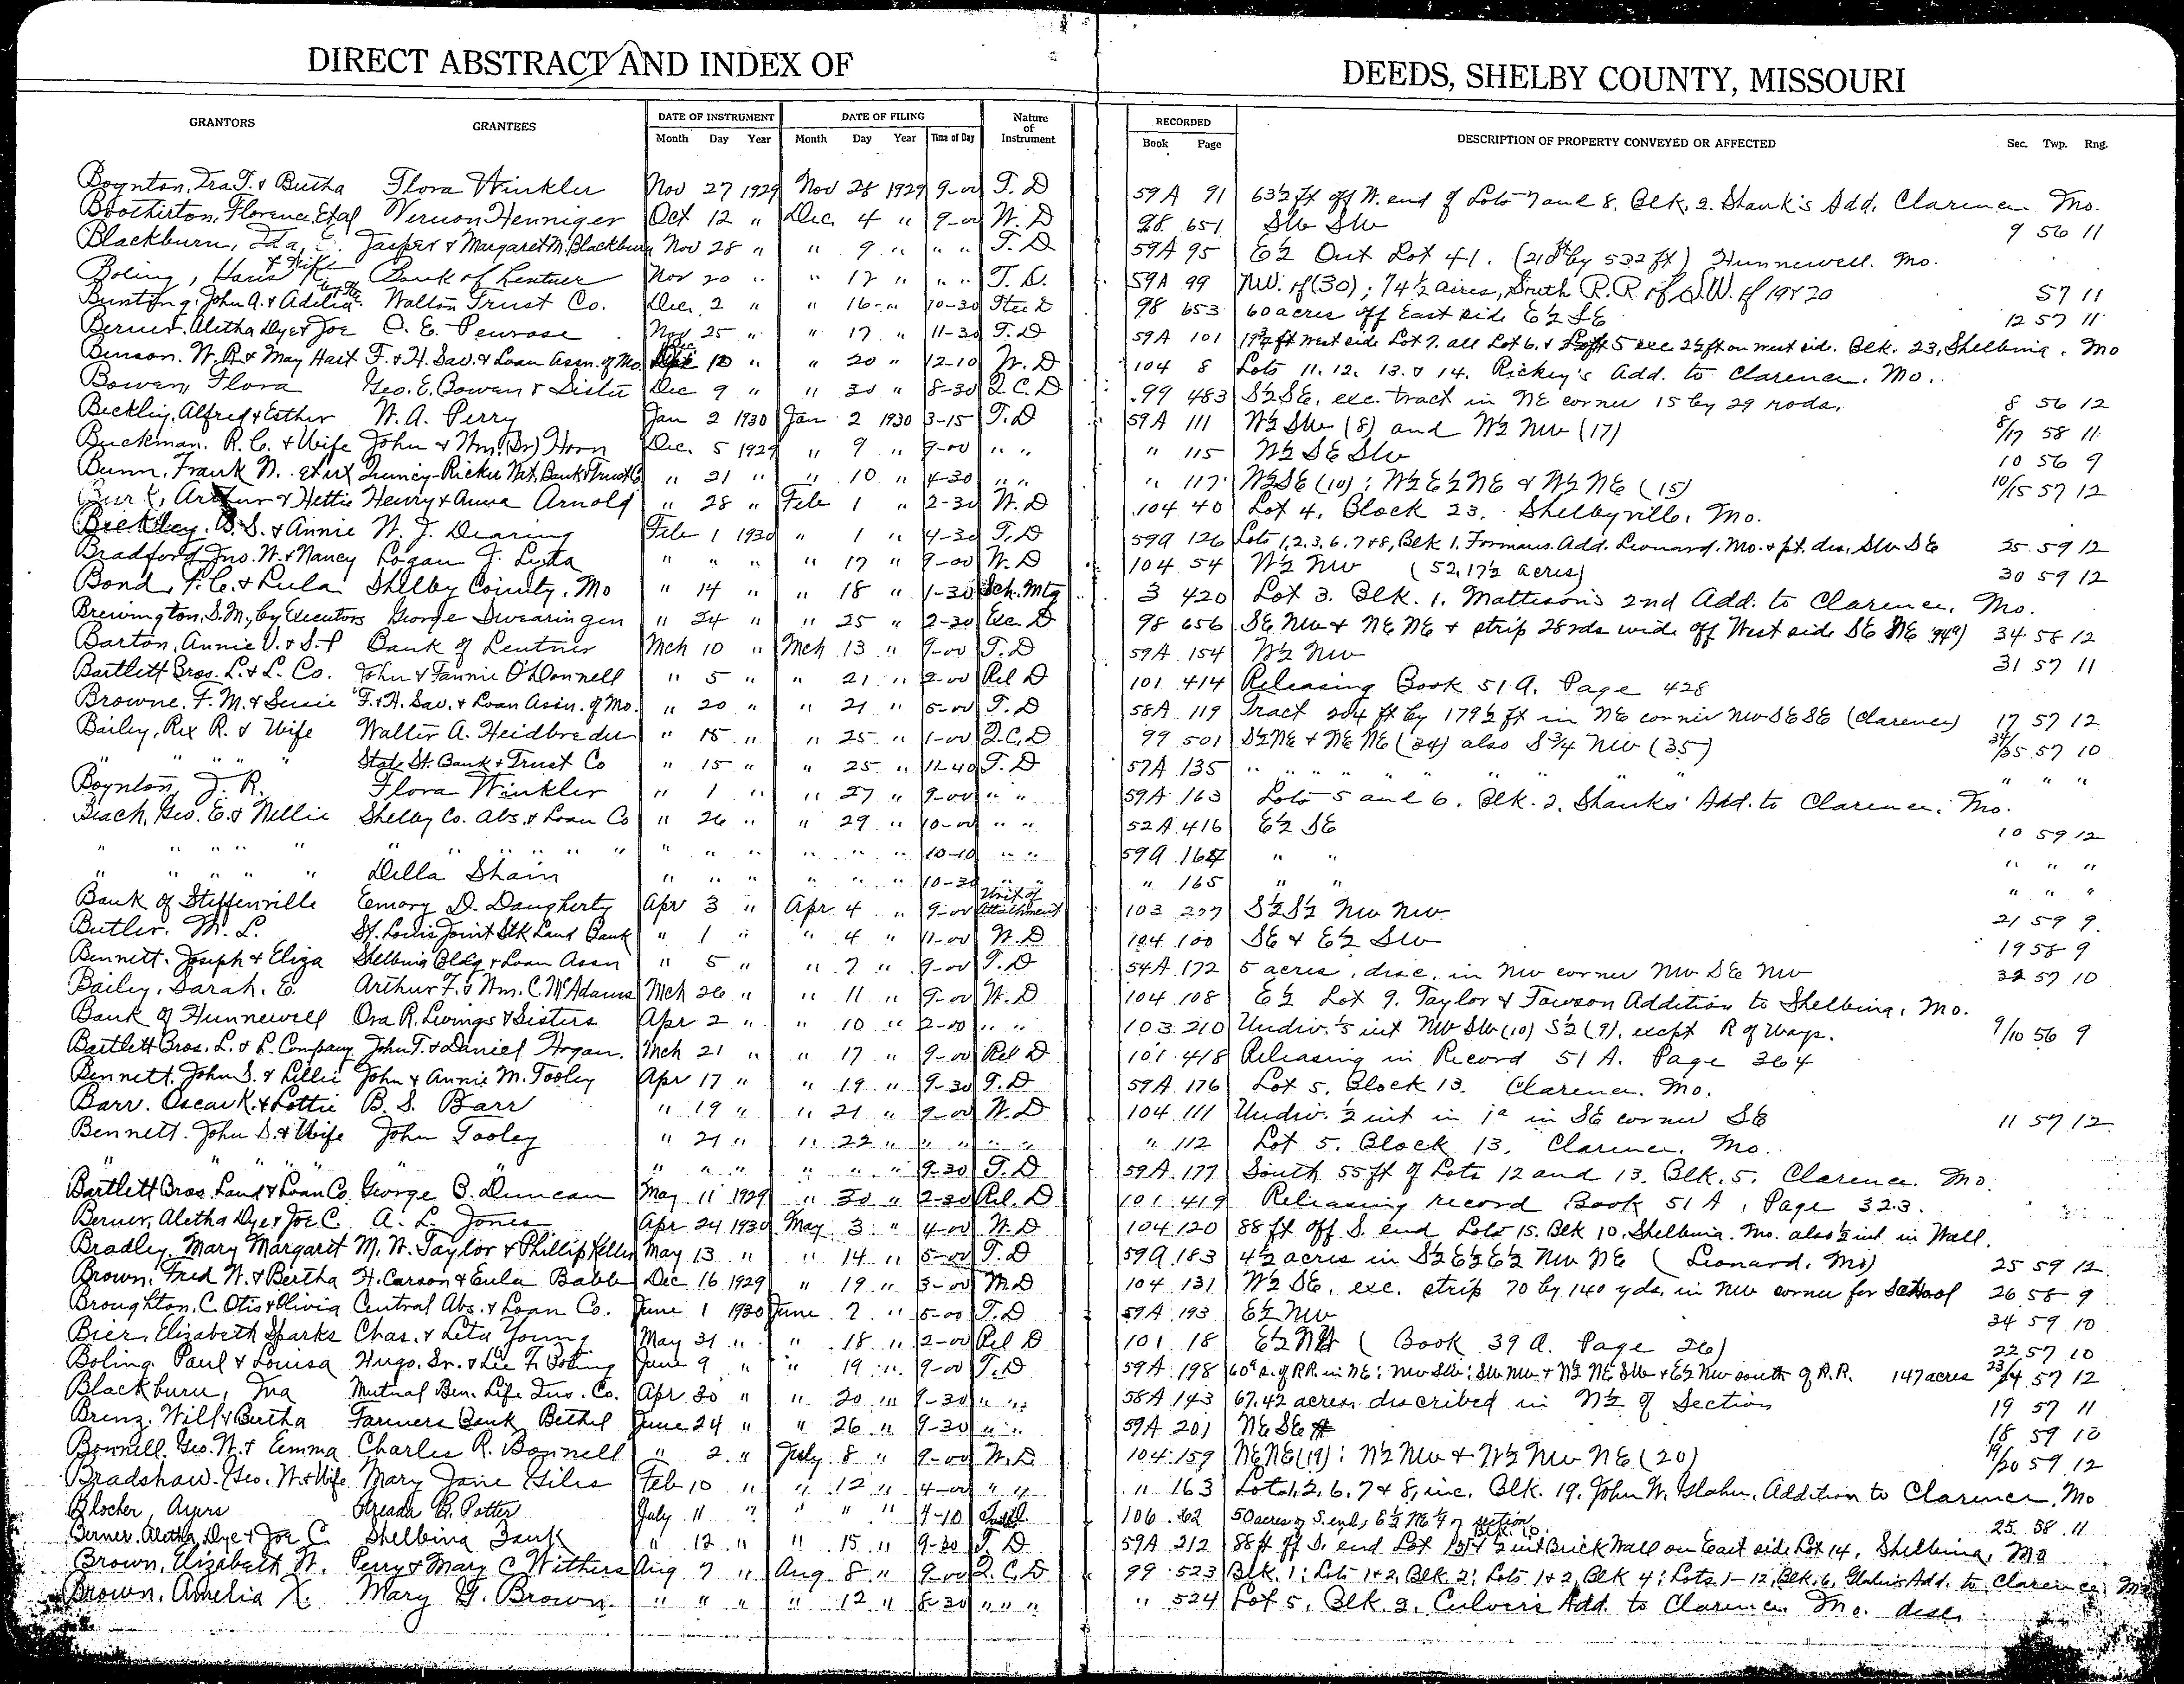 DIRECT ABSTRACT AND INDEX OF DEEDS, SHELBY COUNTY, MISSOURI
GRANTORS GRANTEES DATE OF INSTRUMENT DATE OF FILING Nature of Instrument RECORDED DESCRIPTION OF PROPERTY CONVEYED OR AFFECTED Sec. Twp. Rng.
Month Day Year Month Day Year Time of Day Book Page
Boynton, Ira T. & Butha Flora Winkler Nov 27 1929 Nov 28 1929 9-00 T. D 59A 91 63½ ft off W. end of Lots 7 and 8. Blk. 2. Shank's Add. Clarence. Mo.
Florence, Etal Vernon Henniger Oct 12 " Dec 4 " 9-00 W. D 98 651 SW SW 9 56 11
Blackburn, Ida E. Jasper & Margaret M. Blackburn Nov 28 " " 9 " " " T. D 59A 95 E½ Out Lot 41. (210ft by 532 ft) Hunnewell. Mo.
Boling, & Wife Bank of Lentner Nov 20 " " 12 " " " T. D. 59A 99 NW. of (30); 74½ acres, South R.R. of S.W. of 19 & 20 57 11
Bunting, John A. & Adelia Walton Trust Co. Dec. 2 " " 16 " 10-30 98 653 60 acres off East side E½ SE 12 57 11
Berner, Aletha Dye & Joe O. E. Penrose Nov 25 " " 17 " 11-30 T. D 59A 101 ft west side Lot 7. all Lot 6. & 5 exc. 2½ ft on west side. Blk. 23, Shelbina. Mo
Benson. W. R. & May Hart F. & H. Sav. & Loan Assn. of Mo. Dec 10 " " 20 " 12-10 W. D 104 8 Lots 11. 12. 13. & 14. Rickey's Add. to Clarence. Mo.
Bowen, Flora Geo. E. Bowen & Sister Dec 9 " " 30 " 8-30 Q. C. D 99 483 S½ SE. exc. tract in NE corner 15 by 29 rods. 8 56 12
Beckley, Alfred & Esther W. A. Perry Jan 2 1930 Jan 2 1930 3-15 T. D 59A 111 W½ SW (8) and W½ NW (17) 8/17 58 11
Buckman. R. C. & Wife John & Wm. (Sr) Horn Dec. 5 1929 " 9 " 9-00 " " " 115 W½ SE SW 10 56 9
Bunn, Frank N. et ux Quincy-Ricker Nat. Bank & Trust Co " 21 " " 10 " 4-30 " " " 117 W½ SE (10); W½ E½ NE & W½ NE (15) 10/15 57 12
Burk, Arthur & Hettie Henry & Anna Arnold " 28 " Feb 1 " 2-30 W. D 104 40 Lot 4. Block 23. Shelbyville. Mo.
Beckley. B. S. & Annie W. J. Dearing Feb 1 1930 " 1 " 4-30 T. D 59A 126 Lots 1, 2, 3, 6, 7 & 8, Blk 1. Formans Add. Leonard. Mo. & pt. des. SW SE 25 59 12
Bradford Jno. W. & Nancy Logan J. Lyda " " " " 17 " 9-00 W. D 104 54 W½ NW (52.17½ acres) 30 59 12
Bond, F. C. & Lula Shelby County, Mo " 14 " " 18 " 1-30 Sch. Mtg 3 420 Lot 3. Blk. 1. Mattison's 2nd Add. to Clarence, Mo.
Brewington, S. M., by Executors George Swearingen " 24 " " 25 " 2-30 Exc. D 98 656 SE NW & NE NE & strip 28 rds wide off West side SE NE 34 58 12
Barton, Annie V. & S. P Bank of Lentner Mch 10 " Mch 13 " 9-00 T. D 59A 154 W½ NW 31 57 11
Bartlett Bros. L. & L. Co. John & Fannie O'Donnell " 5 " " 21 " 2-00 Rel D 101 414 Releasing Book 51 A. Page 428
Browne. F. M. & Susie F. & H. Sav. & Loan Assn. of Mo. " 20 " " 21 " 5-00 T. D 58A 119 Tract 204 ft by 179½ ft in NE corner NW SE SE (Clarence) 17 57 12
Bailey, Rex R. & Wife Walter A. Heidbreder " 15 " " 25 " 1-00 Q. C. D 99 501 S½ NE & NE NE (34) also S¾ NW (35) 34/35 57 10
" " " " State St. Bank & Trust Co " 15 " " 25 " 11-40 T. D 57A 135 " " " " " " " " " " "
Boynton, J. R. Flora Winkler " 1 " " 27 " 9-00 " " 59A 163 Lots 5 and 6, Blk. 2, Shanks' Add. to Clarence. Mo.
Beach, Geo. E. & Nellie Shelby Co. Abs. & Loan Co " 26 " " 29 " 10-00 " " 52A 416 E½ SE 10 59 12
" " " " " " " " " " " " " " " " 10-10 " " 59A 164 " " " " "
" " " " " Della Shain " " " " " " 10-30 " " " 165 " " " " "
Bank of Steffenville Emory D. Daugherty Apr 3 " Apr 4 " 9-00 Writ of Attachment 103 277 S½ S½ NW NW 21 59 9
Butler. M. L. St. Louis Joint Stk Land Bank " 1 " " 4 " 11-00 W. D 104 100 SE & E½ SW 19 58 9
Bennett. Joseph & Eliza Shelbina Bldg & Loan Assn " 5 " " 7 " 9-00 T. D 54A 172 5 acres, desc. in NW corner NW SE NW 32 57 10
Bailey, Sarah. E. Arthur F. & Wm. C. McAdams Mch 26 " " 11 " 9-00 W. D 104 108 E½ Lot 9. Taylor & Towson Addition to Shelbina, Mo.
Bank of Hunnewell Ora R. Livings & Sisters Apr 2 " " 10 " 2-00 " " 103 210 Undiv. ⅕ int NW SW (10) S½ (9), except R of Ways. 9/10 56 9
Bartlett Bros. L. & L. Company John T. & Daniel Hogan. Mch 21 " " 17 " 9-00 Rel D 101 418 Releasing in Record 51 A. Page 364
Bennett. John S. & Lillie John & Annie M. Tooley Apr 17 " " 19 " 9-30 T. D 59A 176 Lot 5. Block 13. Clarence. Mo.
Barr. Oscar K. & Lottie B. S. Barr " 19 " " 21 " 9-00 W. D 104 111 Undiv. ½ int in 1a in SE corner SE 11 57 12
Bennett. John S. & Wife John Tooley " 21 " " 22 " " " " " " 112 Lot 5. Block 13. Clarence. Mo.
" " " " " " " " " " " 9-30 T. D 59A 177 South 55 ft of Lots 12 and 13. Blk. 5. Clarence. Mo.
Bartlett Bros. Land & Loan Co. George B. Duncan May 11 1929 " 30 " 2-30 Rel. D 101 419 Releasing record Book 51 A, Page 323.
Berner, Aletha Dye & Joe C. A. L. Jones Apr 24 1930 May 3 " 4-00 W. D 104 120 88 ft off S. end Lots 15. Blk 10. Shelbina. Mo. also ½ int in Wall.
Bradley. Mary Margaret M. W. Taylor & Phillip May 13 " " 14 " 5-00 T. D 59A 183 4½ acres in S½ E½ E½ NW NE (Leonard. Mo) 25 59 12
Brown. Fred W. & Bertha H. Carson & Eula Babb Dec 16 1929 " 19 " 3-00 104 131 W½ SE. exc. strip 70 by 140 yds. in NW corner for School 26 58 9
Broughton, C. Otis & Olivia Central Abs. & Loan Co. June 1 1930 June 7 " 5-00 T. D 59A 193 E½ NW 34 59 10
Bier, Elizabeth Sparks Chas. & Leta Young May 31 " " 18 " 2-00 Rel D 101 18 E½ (Book 39 A. Page 26) 22 57 10
Boling. Paul & Louisa Hugo. Sr. & Lee F. Boling June 9 " " 19 " 9-00 T. D 59A 198 60a s. of RR. in NE; NW SW; SW NW & N½ NE SW & E½ NW south of R.R. 147 acres 23/24 57 12
Blackburn, Ina Mutual Ben. Life Ins. Co. Apr 30 " " 20 " 9-30 " " 58A 143 67.42 acres described in N½ of Section 19 57 11
Brenz. Will & Bertha Farmers Bank Bethel June 24 " " 26 " 9-30 " " 59A 201 NE SE 18 59 10
Bonnell. Geo. W. & Emma Charles R. Bonnell " 2 " July 8 " 9-00 W. D 104 159 NE NE (19); N½ NW & W½ NW NE (20) 19/20 59 12
Bradshaw. Geo. W. & Wife Mary Jane Giles Feb 10 " " 12 " 4-00 " " " 163 Lots 1, 2, 6, 7 & 8, inc. Blk. 19. John W. Glahn. Addition to Clarence, Mo
Blocher, Ayers B. Potter July 11 " " " " 4-10 106 62 50 acres of S. end, E½ NE¼ of section 25 58 11
Berner. Aletha Dye & Joe C. Shelbina Bank " 12 " " 15 " 9-30 T. D 59A 212 88 ft off S. end Lot 15 Blk 10. & ½ int Brick Wall on East side Lot 14, Shelbina, Mo
Brown, Elizabeth W. Perry & Mary C Withers Aug 7 " Aug 8 " 9-00 Q. C. D 99 523 Blk. 1; Lots 1 & 2, Blk. 2; Lots 1 & 2, Blk 4; Lots 1-12, Blk. 6, Glahn's Add. to Clarence. Mo
Brown. Amelia X. Mary G. Brown. " " " " 12 " 8-30 " " " " 524 Lot 5. Blk. 2. Culver's Add. to Clarence. Mo. desc.